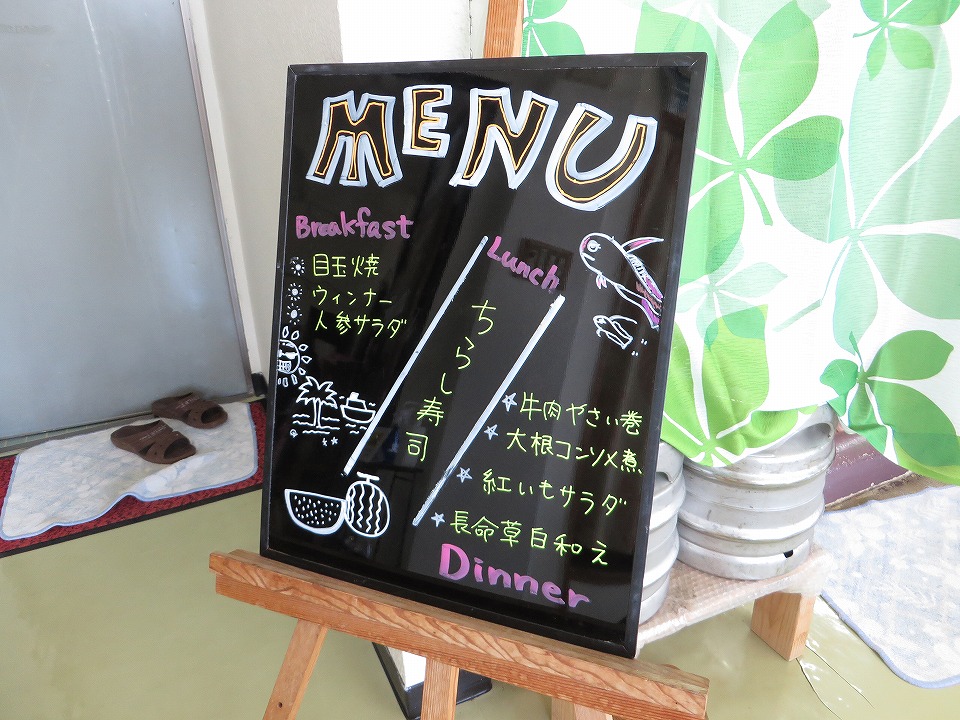 MENU
Breakfast
目玉焼
ウィンナー
人参サラダ
Lunch
ちらし寿司
牛肉やさい巻
大根コンソメ煮
紅いもサラダ
長命草白和え
Dinner